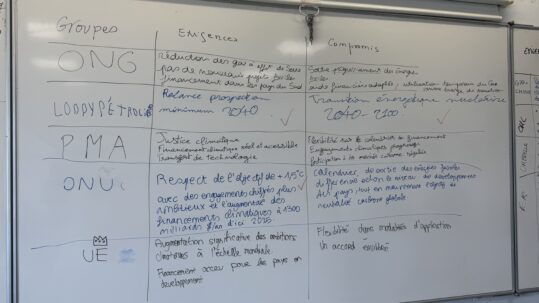 Groupes
Exigences
Compromis
ONG
Réduction des gaz à effet de serre
pas de nouveaux projets fossiles
financement dans les pays du Sud
Sortie progressivement des énergies
fossiles
LOBBY PÉTROLIER
Relance prospection
minimum 2040
Transition énergétique nucléaire
2040-2100
PMA
Justice climatique
Financement climatique réel et accessible
Transfert de technologie
Flexibilité sur le calendrier de financement
Engagements climatiques progressifs
Participation à la marche carbone régulée
ONU
Respect de l'objectif de +1,5°C
avec des engagements chiffrés plus
ambitieux et l'augmentat° des
financements climatiques à 1300
milliards $/an d'ici 2035
Calendrier de sortie des énergies fossiles
différencié selon le niveau de développement
des pays, tout en maintenant
neutralité carbone globale
UE
Augmentation significative des ambitions
climatiques à l'échelle mondiale.
Financement accru pour les pays en
développement
Flexibilité dans modalités d'application
Un accord équilibré